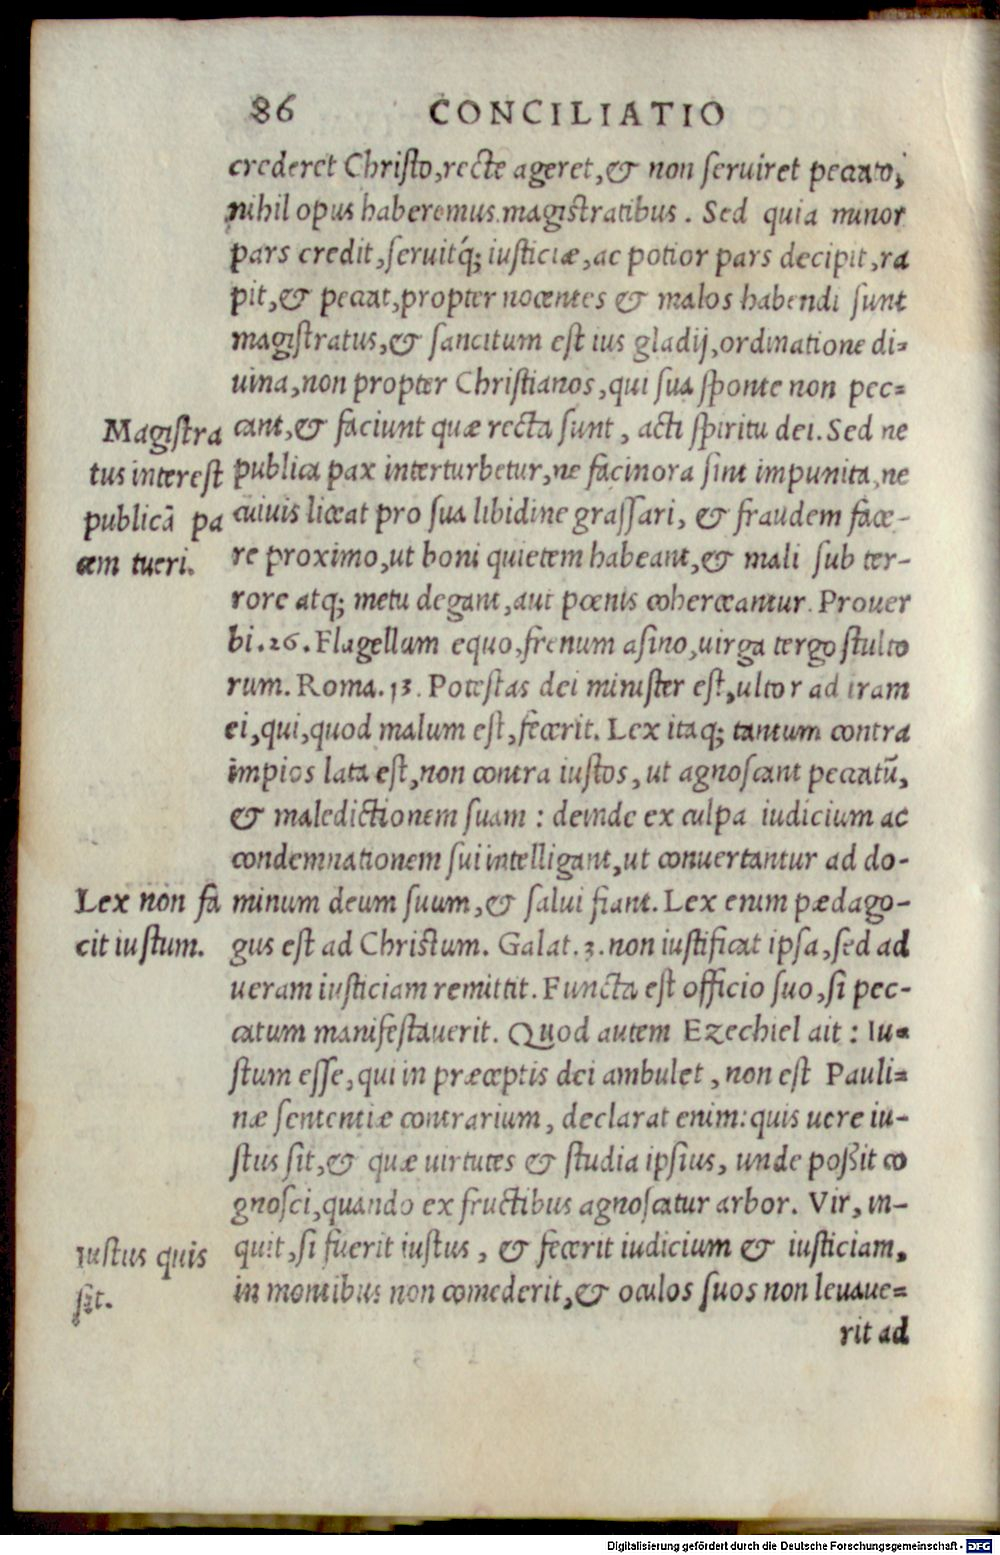 86 CONCILIATIO
crederet Christo, recte ageret, & non seruiret peccato,
nihil opus haberemus magistratibus. Sed quia minor
pars credit, seruitq́; iusticiæ, ac potior pars decipit, ra
pit, & peccat, propter nocentes & malos habendi sunt
magistratus, & sancitum est ius gladij, ordinatione di=
uina, non propter Christianos, qui sua sponte non pec=
cant, & faciunt quæ recta sunt, acti spiritu dei. Sed ne
publica pax interturbetur, ne facinora sint impunita, ne
cuiuis liceat pro sua libidine grassari, & fraudem face-
re proximo, ut boni quietem habeant, & mali sub ter-
rore atq; metu degant, aut pœnis coherceantur. Prouer
bi. 26. Flagellum equo, frenum asino, uirga tergo stulto
rum. Roma. 13. Potestas dei minister est, ultor ad iram
ei, qui, quod malum est, fecerit. Lex itaq; tantum contra
impios lata est, non contra iustos, ut agnoscant peccatū,
& maledictionem suam: deinde ex culpa iudicium ac
condemnationem sui intelligant, ut conuertantur ad do-
minum deum suum, & salui fiant. Lex enim pædago-
gus est ad Christum. Galat. 3. non iustificat ipsa, sed ad
ueram iusticiam remittit. Functa est officio suo, si pec-
catum manifestauerit. Quod autem Ezechiel ait: Iu=
stum esse, qui in præceptis dei ambulet, non est Pauli=
næ sententiæ contrarium, declarat enim: quis uere iu-
stus sit, & quæ uirtutes & studia ipsius, unde poßit co
gnosci, quando ex fructibus agnoscatur arbor. Vir, in-
quit, si fuerit iustus, & fecerit iudicium & iusticiam,
in montibus non comederit, & oculos suos non leuaue=
rit ad
Magistra
tus interest
publicā pa
cem tueri.
Lex non fa
cit iustum.
Iustus quis
sit.
Digitalisierung gefördert durch die Deutsche Forschungsgemeinschaft - DFG